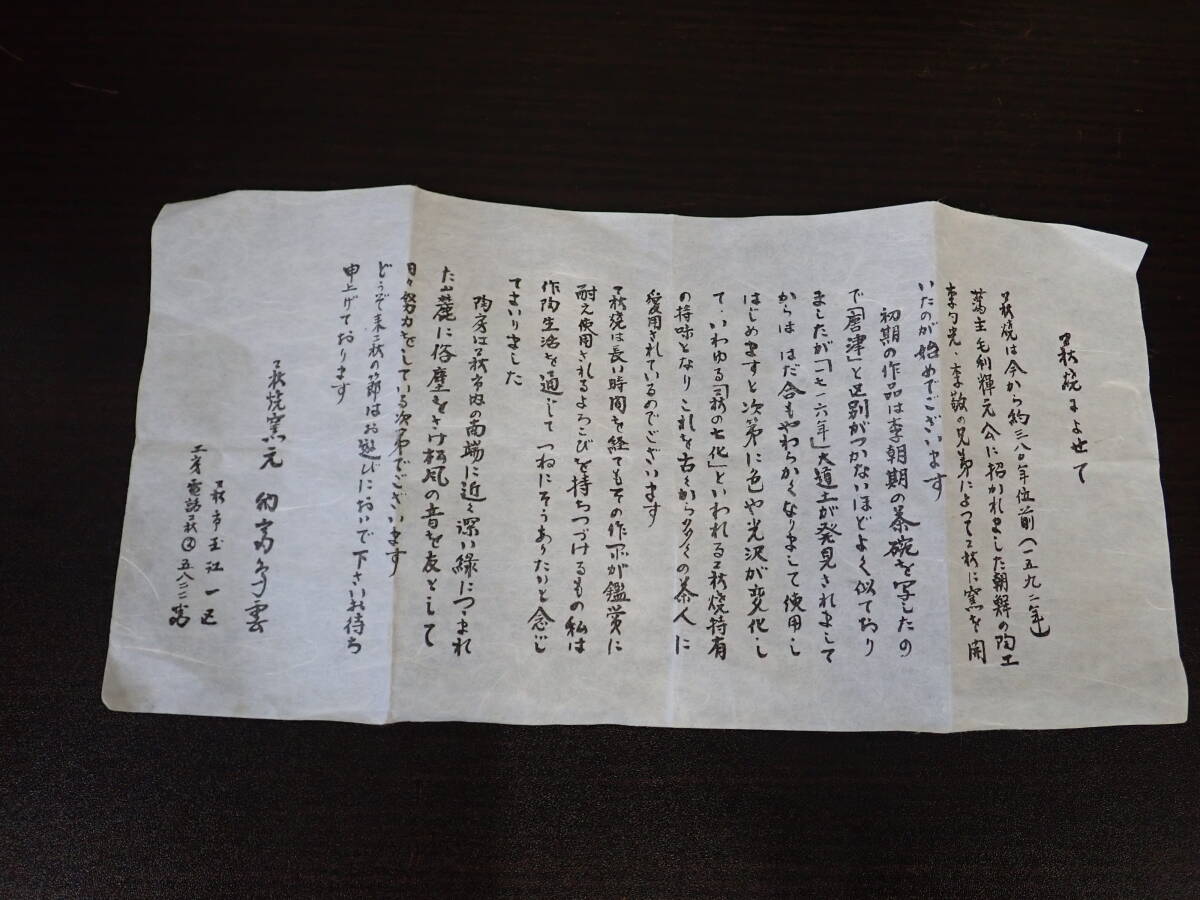 萩焼によせて
萩焼は今から約三八〇年位前(一五九二年)
藩主毛利輝元公に招かれました朝鮮の陶工
李勺光・李敬の兄弟によって萩に窯を開
いたのが始めでございます
初期の作品は李朝期の茶碗を写したの
で「唐津」と区別がつかないほどよく似ており
ましたが「一七一六年」大道土が発見されまして
からは はだ合もやわらかくなりまして使用し
はじめますと次第に色や光沢が変化し
て、いわゆる「萩の七化」といわれる萩焼特有
の持味となりこれを古くから多くの茶人に
愛用されているのでございます
萩焼は長い時間を経てもその作品が鑑賞に
耐え使用されるよろこびを持ちつづけるもの私は
作陶生活を通じて つねにそうありたいと念じ
てまいりました
陶房は萩市内の南端に近く深い緑につつまれ
た山麓に俗塵をさけ松風の音を友として
日々努力をしている次第でございます
どうぞ来萩の節はお遊びにおいで下さいお待ち
申上げております
萩焼窯元 納富鳥雲
萩市玉江一区
工房電話萩②五八二二番